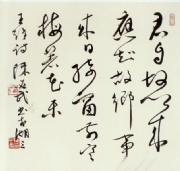 君自故鄉來
應知故鄉事
來日綺窗前寒
梅著花未
王維詩 陳